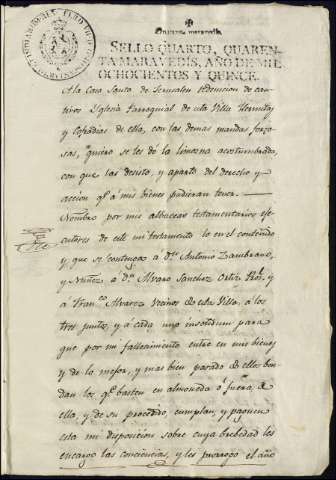 Quarenta maravedis.
SELLO QUARTO, QUAREN-
TA MARAVEDIS, AÑO DE MIL
OCHOCIENTOS Y QUINCE.
A la Casa Santa de Jerusalen redencion de cau-
tivos Yglesia Parroquial de esta Villa Hermitas
y Cofadias de ella, con las demas mandas forzo-
sas, quiero se les de la limosna acostumbrada,
con que las desisto, y aparto del derecho y
accion qe. á mis bienes pudieran tener.
Nombro por mis albaceas testamentarios eje-
cutores de este mi testamento lo en el contenido
y que se contenga á Dn. Antonio Zambrano,
y Nuñez á Dn. Alvaro Sanchez Ortiz Pbro. y
á Franco. Alvarez Vecinos de esta Villa, á los
tres juntos, y á cada uno insolidum para
que por mi fallecimiento entre en mis bienes
y de lo mejor, y mas bien parado de ellos ven-
dan los qe. basten en almoneda ó fuera de
ella, y de su procedido, cumplan, y paguen
esta mi disposicion sobre cuya brebedad les
encargo las conciencias, y les prorrogo el año